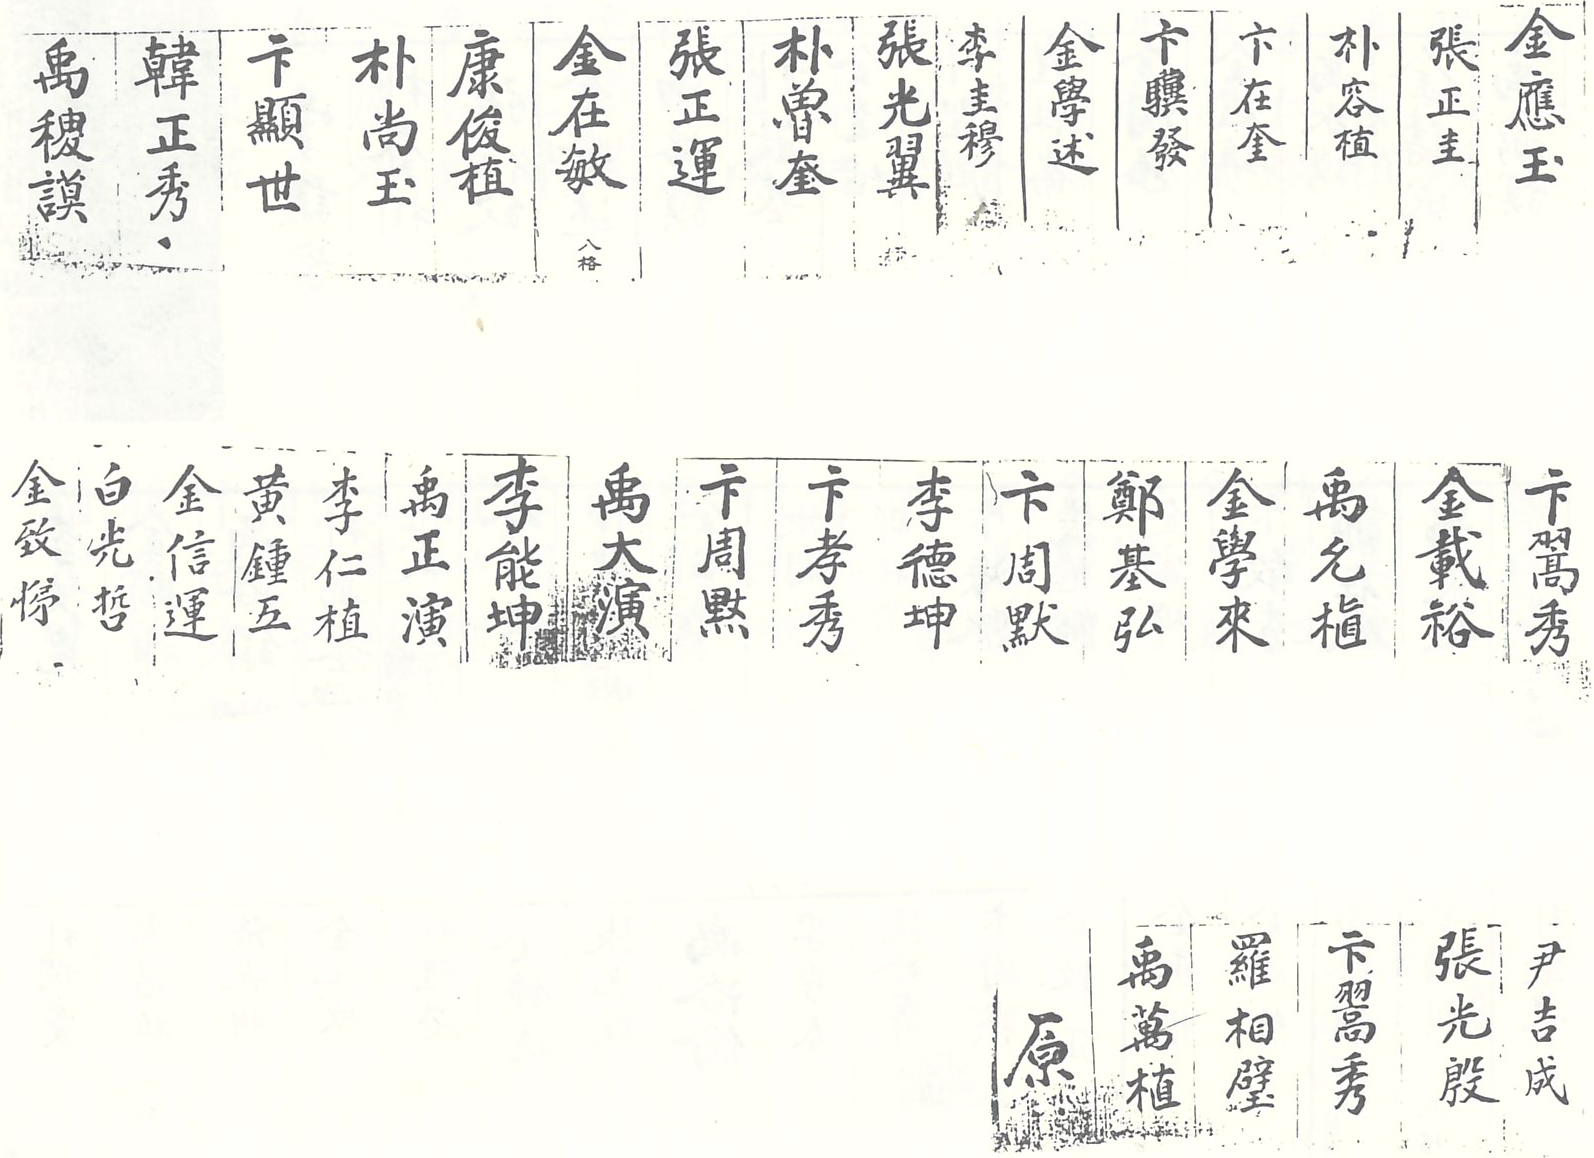 金應玉
張正圭
朴容植
卞在奎
卞驥發
金學述
李圭穆
張光翼
朴魯奎
張正運
金在敏 八格
康俊植
朴尚玉
卞顯世
韓正秀
禹稷謨
卞翯秀
金載裕
禹允楨
金學來
鄭基弘
卞周默
李德坤
卞孝秀
卞周黙
禹大濱
李能坤
禹正演
李仁植
黃鍾五
金信運
白光哲
金致悌
尹吉成
張光殷
卞翯秀
羅相璧
禹萬植
原